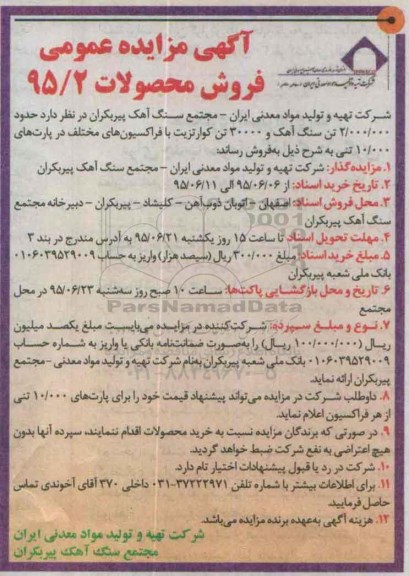 آگهی مزایده عمومی
فروش محصولات ۹۵/۲
شرکت تهیه و تولید مواد معدنی ایران – مجتمع سنگ آهک پیربکران در نظر دارد حدود
۲/۰۰۰/۰۰۰ تن سنگ آهک و ۳۰۰۰۰ تن کوارتزیت با فراکسیون‌های مختلف در پارت‌های
۱۰/۰۰۰ تنی به شرح ذیل به‌فروش رساند:
۱. مزایده‌گذار: شرکت تهیه و تولید مواد معدنی ایران – مجتمع سنگ آهک پیربکران
۲. تاریخ خرید اسناد: از ۹۵/۰۶/۰۶ الی ۹۵/۰۶/۱۱
۳. محل فروش اسناد: اصفهان – اتوبان ذوب‌آهن – کلیشاد – پیربکران – دبیرخانه مجتمع
سنگ آهک پیربکران
۴. مهلت تحویل اسناد: تا ساعت ۱۵ روز یکشنبه ۹۵/۰۶/۲۱ به آدرس مندرج در بند ۳
۵. مبلغ خرید اسناد: مبلغ ۳۰۰/۰۰۰ ریال (سیصد هزار) واریز به حساب ۰۱۰۶۰۳۹۵۲۹۰۰۹
بانک ملی شعبه پیربکران
۶. تاریخ و محل بازگشایی پاکت‌ها: ساعت ۱۰ صبح روز سه‌شنبه ۹۵/۰۶/۲۳ در محل
مجتمع
ParsNamadData
۷. نوع و مبلغ سپرده: شرکت‌کننده در مزایده می‌بایست مبلغ یکصد میلیون
ریال (۱۰۰/۰۰۰/۰۰۰ ریال) را به‌صورت ضمانت‌نامه بانکی یا واریز به شماره حساب
۰۱۰۶۰۳۹۵۲۹۰۰۹ بانک ملی شعبه پیربکران به‌نام شرکت تهیه و تولید مواد معدنی –مجتمع
پیربکران ارائه نماید.
۸. داوطلب شرکت در مزایده می‌تواند پیشنهاد قیمت خود را برای پارت‌های ۱۰/۰۰۰ تنی
از هر فراکسیون اعلام نماید.
۹. در صورتی که برندگان مزایده نسبت به خرید محصولات اقدام ننمایند، سپرده آنها بدون
هیچ اعتراضی به نفع شرکت ضبط خواهد گردید.
۱۰. شرکت در رد یا قبول پیشنهادات اختیار تام دارد.
۱۱. برای اطلاعات بیشتر با شماره تلفن ۳۷۲۲۲۹۷۱-۰۳۱ داخلی ۳۷۰ آقای آخوندی تماس
حاصل فرمایید.
۱۲. هزینه آگهی به‌عهده برنده مزایده می‌باشد.
شرکت تهیه و تولید مواد معدنی ایران
مجتمع سنگ آهک پیربکران